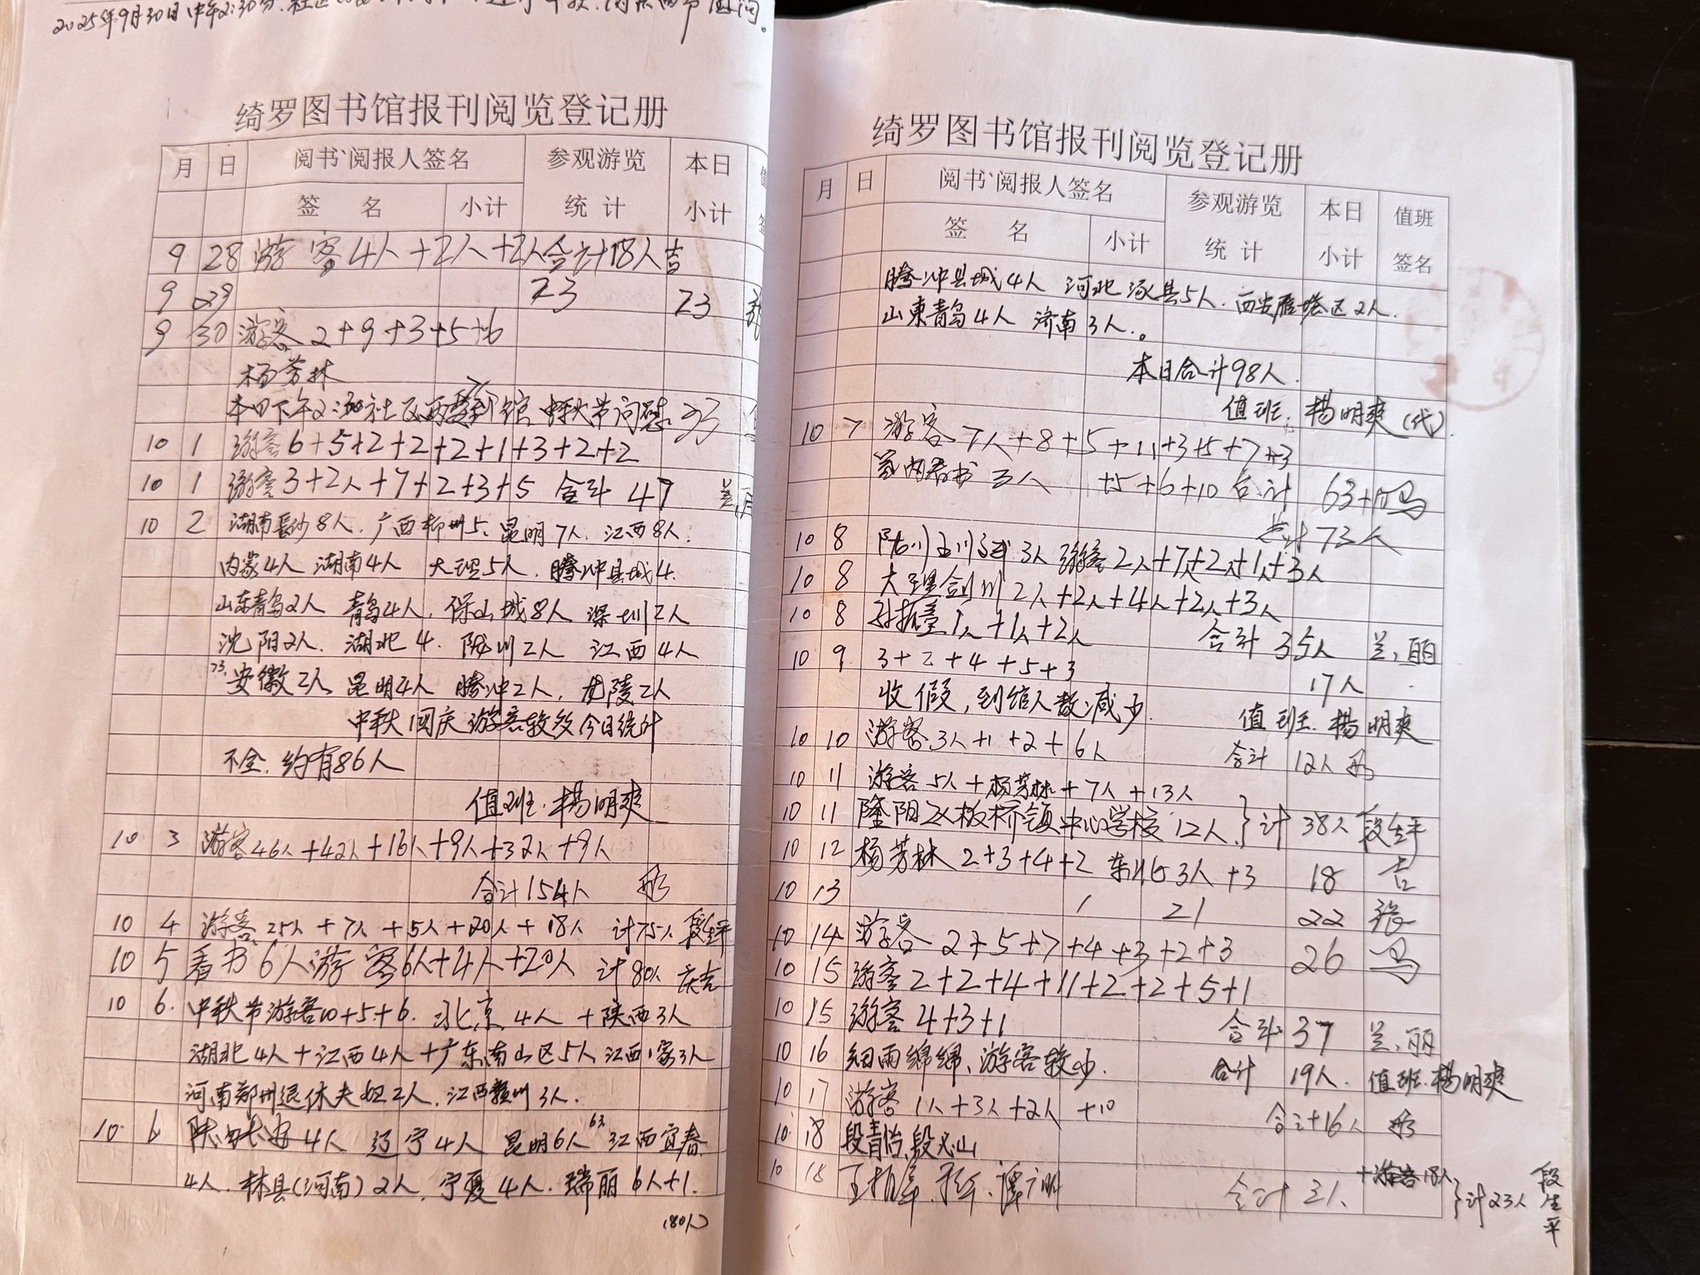 2025年9月30日中午2:30分.社区
绮罗图书馆报刊阅览登记册
月 日 阅书、阅报人签名 参观游览 本日
签 名 小计 统 计 小计
9 28 游客4人+2人+2人合计18人 吉
9 29 23 23
9 30 游客2+9+3+5+6
杨芳林
本日下午2:30社区两委到馆中秋节问慰
10 1 游客6+5+2+2+2+1+3+2+2
10 1 游客3+2人+7+2+3+5 合计47
10 2 湖南长沙8人.广西柳州5.昆明7人.江西8人.
内蒙4人 湖南4人 大理5人.腾冲县城4.
山东青岛2人 青岛4人.保山城8人 深圳2人
沈阳2人.湖北4.陇川2人 江西4人
73 安徽2人 昆明4人 腾冲2人.龙陵2人
中秋国庆游客较多今日统计
不全.约有86人
值班.杨明爽
10 3 游客46人+42人+16人+9人+32人+9人
合计154人
10 4 游客25人+7人+5人+20人+18人 计75人 段生平
10 5 看书6人游客6人+4人+20人 计80人
10 6. 中秋节游客10+5+6.北京4人+陕西3人
湖北4人+江西4人+广东南山区5人江西1家3人
河南郑州退休夫妇2人.江西赣州3人.
10 6 陕西长安4人 辽宁4人 昆明6人 63 江西宜春
4人.林县(河南)2人.宁夏4人.瑞丽6人+1.
(80人)
绮罗图书馆报刊阅览登记册
月 日 阅书、阅报人签名 参观游览 本日 值班
签 名 小计 统 计 小计 签名
腾冲县城4人 河北涿县5人.西安雁塔区2人.
山东青岛4人 济南3人.
本日合计98人.
值班.杨明爽(代).
10 7 游客7人+8+5+11+3+5+7+3
馆内看书3人 +5+6+10 合计 63+ 马
总计73人
10 8 陇川 3人 游客2人+7人+2人+1人+3人
10 8 大理剑川2人+2人+4人+2人+3人
10 8 1人+1人+2人 合计35人 兰、丽
10 9 3+2+4+5+3 17人
收假,到馆人数减少. 值班.杨明爽
10 10 游客3人+1+2+6人 合计12人
10 11 游客5人+杨芳林+7人+13人
10 11 隆阳区板桥镇中心学校12人 }计38人 段生平
10 12 杨芳林2+3+4+2 3人+3 18 吉
10 13 1 21 22 张
10 14 游客2+5+7+4+3+2+3 26 马
10 15 游客2+2+4+11+2+2+5+1
10 15 游客4+3+1 合计37 兰、丽
10 16 细雨绵绵、游客较少. 合计19人.值班.杨明爽
10 17 游客1人+3人+2人+10 合计16人
10 18 段青怡,段 山 +游客18人
10 18 合计 }计23人 段生平